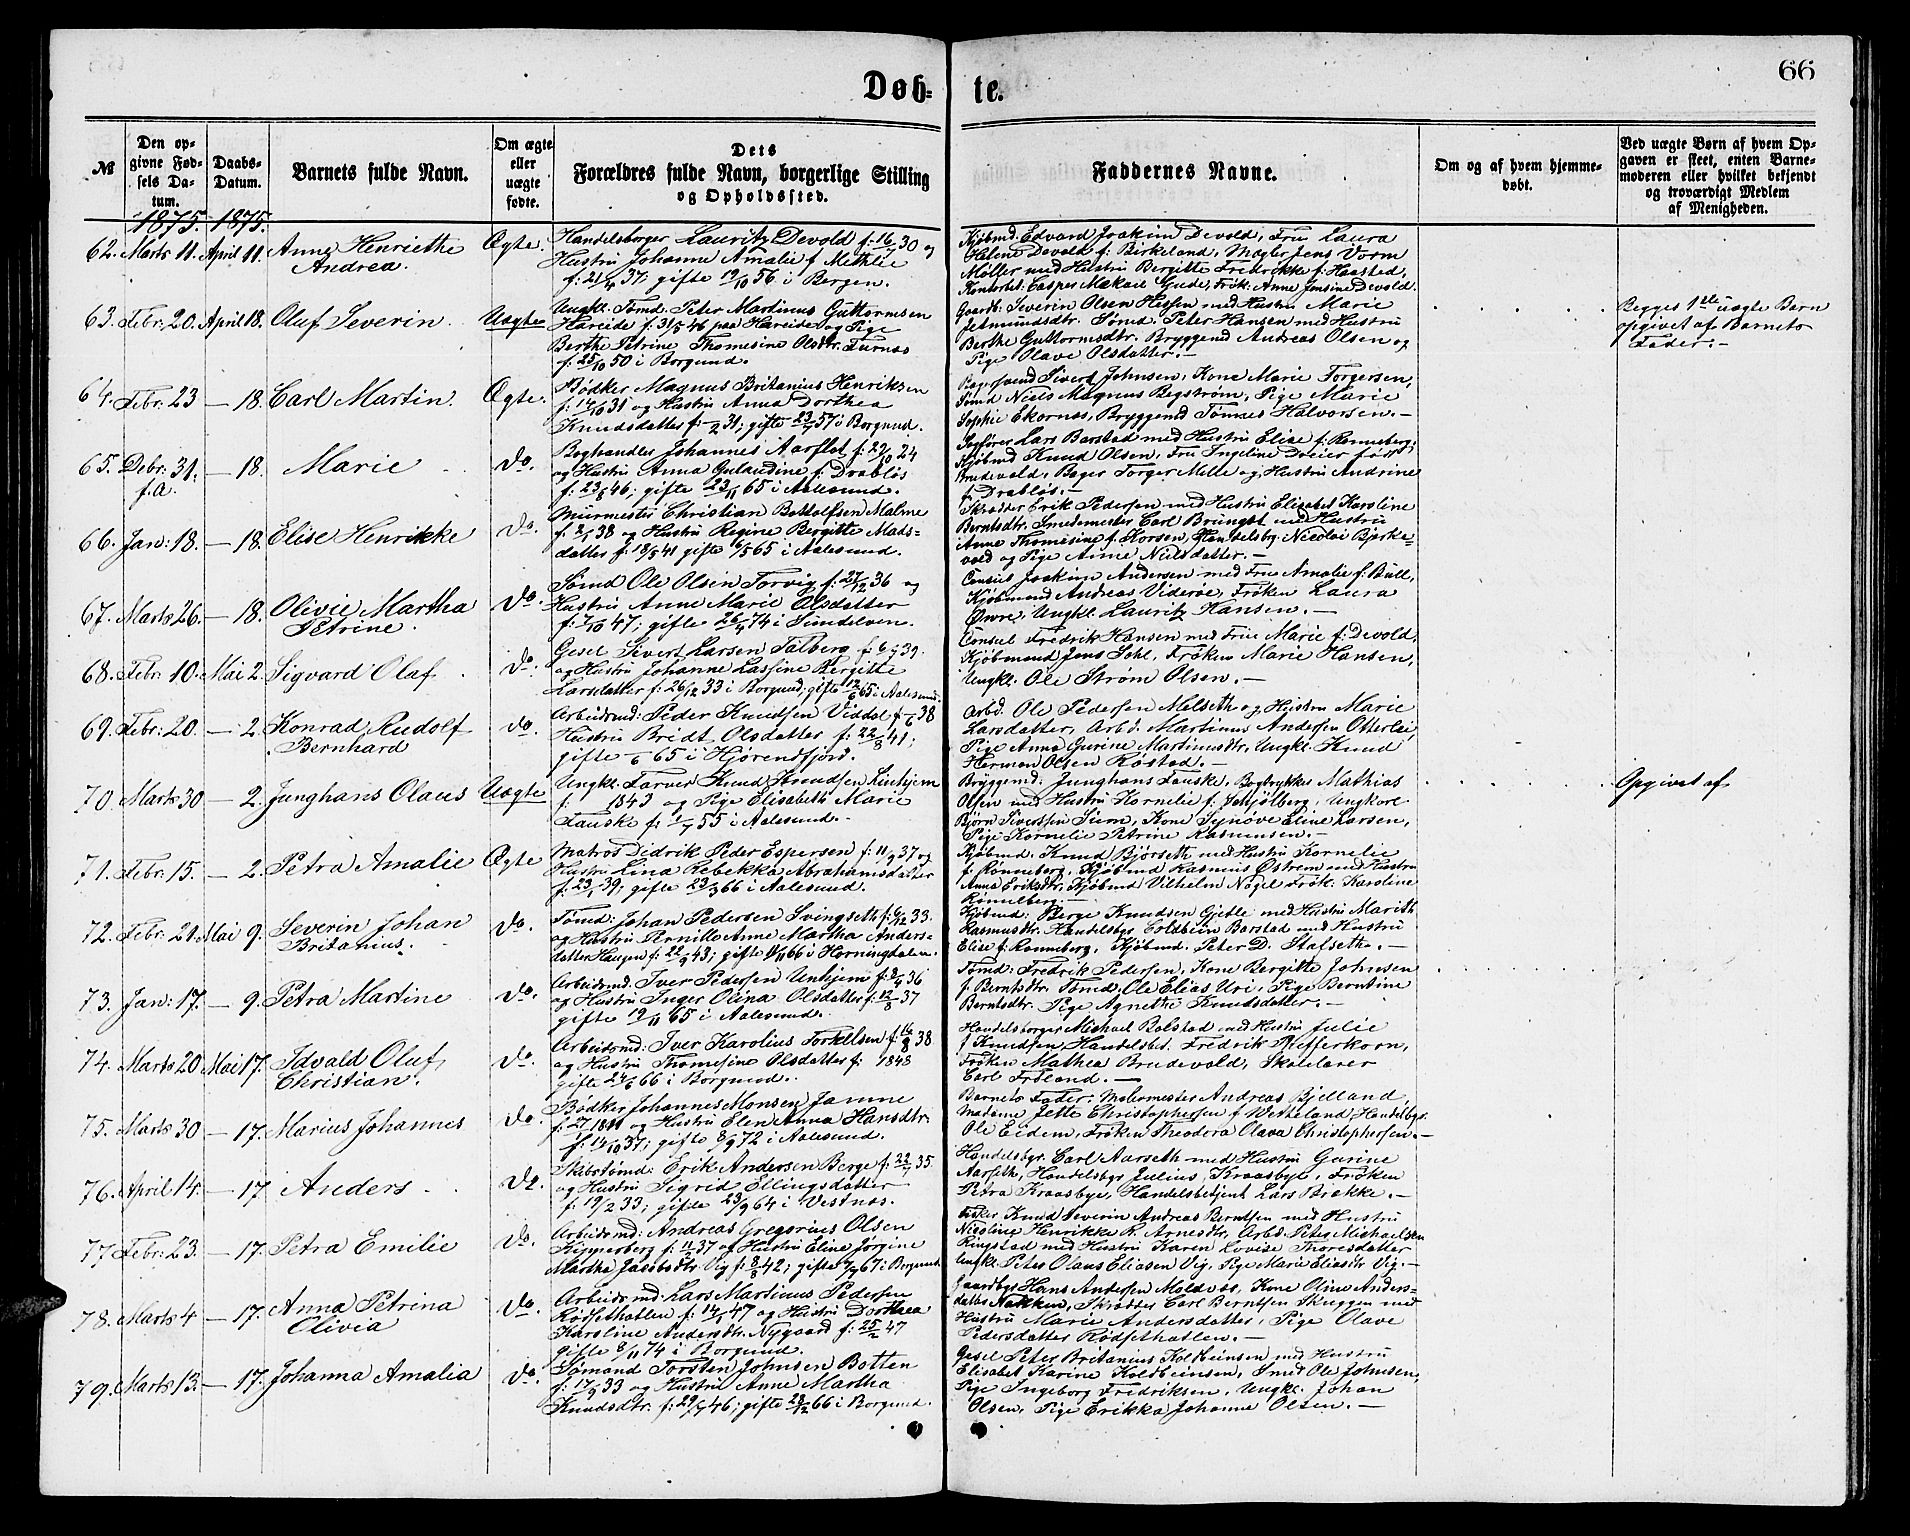 66
Døb- te.
№
Den opgivne Fødsels Datum.
Daabs-Datum.
Barnets fulde Navn.
Om ægte eller uægte fødte.
Dets Forældres fulde Navn, borgerlige Stilling og Opholdssted.
Faddernes Navne.
Om og af hvem hjemmedøbt.
Ved uægte Børn af hvem Opgaven er skeet, enten Barnemoderen eller hvilket bekjendt og troværdigt Medlem af Menigheden.
1875. 1875.
62. Marts 11. April 11. Anne Henriethe Andrea. Ægte.
Handelsborger Lauritz Devold f. 16/7 30 og
Hustru Johanne Amalie f. Methlie
f. 21/4 37; gifte 19/10 56 i Bergen.
Kjøbmd. Edvard Joakim Devold, Fru Laura
Helene Devold f. Birkeland, Mægler Jens Worm
Møller med Hustru Bergitte Fredrikke f. Haasted,
Kontorbet. Casper Makaie Gude, Frøk. Anne Jensine Devold.
63. Febr. 20. April 18. Oluf Severin. Uægte
Ungkl. Tømd. Peter Martinus Guttormsen
Hareide f. 31/5 46 paa Hareide og Pige
Berthe Petrine Thomesine Olsdtr. Furnæs
f. 25/10 50 i Borgund.
Gaardb. Severin Olsen Hessen med Hustru Marie
Jetmundsdtr. Sømd. Peter Hansen med Hustru
Berthe Guttormsdtr. Bryggemd Andreas Olsen og
Pige Olave Olsdatter.
Begges 1ste uægte Barn
opgivet af Barnets
Fader.
64. Febr. 23 — 18. Carl Martin. Ægte.
Bødker Magnus Britanius Henriksen
f. 14/10 31 og Hustru Anna Dorthea
Knudsdatter f. 31; gifte 23/7 57 i Borgund.
Bagersvend Sivert Johnsen, Kone Marie Torgersen,
Sømd Niels Magnus Begstrøm, Pige Marie
Sophie Ekornæs, Bryggemd Tønnes Halvorsen.
65. Debr. 31. f.A. — 18. Marie do.
Boghandler Johannes Aarflot f. 29/10 24
og Hustru Anna Gulaudine f. Drabløs
f. 23/6 46; gifte 23/11 65 i Aalesund.
Sagfører Lars Barstad med Hustru Elise f. Rønneberg,
Kjøbmd Knud Olsen, Fru Ingeline Dreier født
Brudevold, Bager Torger Melle og Hustru Andrine
f. Drabløs.
66. Jan: 18. — 18. Elise Henrikke do.
Murmester Christian Botholfsen Malme
f. 2/1 38 og Hustru Regine Bergitte Mads-
datter f. 18/3 41 gifte 6/5 65 i Aalesund.
Skrædder Erik Pedersen med Hustru Elisabet Karoline
Berntsdtr. Smedemester Carl Brungst med Hustru
Anne Thomesine f. Korsen, Handelsbg. Nicolai Bjerke-
vold og Pige Anne Nielsdatter.
67. Marts 26. — 18. Olivie Martha Petrine. do.
Sømd Ole Olsen Torvig f. 27/12 36 og
Hustru Anne Marie Olsdatter
f. 7/10 47; gifte 26/4 74 i Sundelven.
Consul Joakim Andersen med Frue Amalie f. Bull,
Kjøbmand Andreas Viderøe, Frøken Laura
Øwre, Ungkl. Lauritz Hansen.
68. Febr. 10. Mai 2. Sigvard Olaf do.
Gesel Sivert Larsen Talberg f. 6/9 39.
og Hustru Johanne Lassine Bergitte
Larsdatter f. 26/12 33 i Borgund; gifte 12/6 65 i Aalesund.
Consul Fredrik Hansen med Frue Marie f. Devold.
Kjøbmand Jens Dahl, Frøken Marie Hansen,
Ungkl. Ole Strøm Olsen.
69. Febr. 20. — 2. Konrad Rudolf Bernhard do.
Arbeidsmd: Peder Knudsen Viddal f. /6 38
Hustru Bridt Olsdatter f. 22/8 41;
gifte /6 65 i Hjørendfjord.
Arbd. Ole Pedersen Melseth og Hustru Marie
Larsdatter, Arbd. Martinus Andersen Otterlei,
Pige Anna Gurine Martinusdtr, Ungkl. Knud
Herman Olsen Røstad.
70. Marts 30 — 2. Junghans Olaus Uægte
Ungkl. Farver Knud Knudsen Lunhjem
f. 1843 og Pige Elisabeth Marie
Fauske f. 1/7 55 i Aalesund.
Bryggemd: Junghans Fauske, Bogtrykker Mathias
Olsen med Hustru Kornelie f. Schjølberg, Ungkarl
Bjørn Sivertsen Sum, Kone Synøve Eline Larsen,
Pige Kornelie Petrine Rasmussen.
Opgivet af
71. Febr. 15. — 2. Petra Amalie Ægte
Matros Didrik Peder Espersen f. 11/9 37 og
Hustru Lina Rebekka Abrahamsdatter
f. 23/1 39; gifte 23/3 66 i Aalesund.
Kjøbmd. Knud Bjørseth med Hustru Kornelie
f. Rønneberg, Kjøbmd Rasmus Østrem med Hustru
Anna Eriksdtr. Kjøbmd Vilhelm Nagel Frøk. Karoline
Rønneberg.
72. Febr. 21. Mai 9. Severin Johan Britanius. do.
Tømd: Johan Pedersen Svingseth f. 6/12 33.
og Hustru Pernille Anne Martha Anders-
datter Haugen f. 22/9 43; gifte /11 66 i Horningdalen.
Kjøbmd: Berge Knudsen Gjetle med Hustru Marith
Rasmusdtr. Handelsbgr. Coldbein Barstad med Hustru
Elise f. Rønneberg, Kjøbmd. Peter D. Stafseth.
73. Jan: 17. — 9. Petra Martine do.
Arbeidsmd. Iver Pedersen Unhjem f. 2/4 36
og Hustru Inger Olina Olsdatter f. 12/8 37
gifte 19/11 65 i Aalesund.
Tømd: Fredrik Pedersen, Kone Bergitte Johnsen
f. Berntsdtr. Tømd. Ole Elias Uri, Pige Berntine
Berntsdtr. Pige Agnethe Knudsdatter.
74. Marts 20 Mai 17. Idvald Oluf Christian. do.
Arbeidsmd: Iver Karolius Torkelsen f. 16/8 38
og Hustru Thomesine Olsdatter f. 1848
gifte 24/6 66 i Borgund.
Handelsborger Michael Bolstad med Hustru Julie
f. Knudsen, Handelsbet. Fredrik Pfefferkorn,
Frøken Mathea Brudevold, Skolelærer
Carl Frøland.
75. Marts 30 — 17. Marius Johannes do.
Bødker Johannes Monsen Jamne
f. 27/1 1841 og Hustru Elen Anna Hansdtr.
f. 14/10 37; gifte 8/9 72 i Aalesund.
Barnets Fader. Malermester Andreas Bjelland,
Madame Jette Christophersen f. Vetteland, Handelbgr.
Ole Eidem, Frøken Theodora Olava Christophersen.
76. April 14. — 17 Anders do.
Skibstømd: Erik Andersen Berge f. 22/7 35
og Hustru Sigrid Ellingsdatter
f. 19/2 33; gifte 23/9 64 i Vestnæs.
Handelsbgr. Carl Aarseth med Hustru Gurine
Aarseth, Handelsbgr Julius Kraasbye, Frøken
Petra Kraasbye, Handelsbetjent Lars Brække.
77 Febr. 23. — 17. Petra Emilie do.
Arbeidsmd: Andreas Gregorius Olsen
Kipperberg f. 11/2 37 og Hustru Eline Jørgine
Martha Jacobsdtr. Vig f. 8/8 42; gifte 7/7 67 i Borgund
Fisker Knud Severin Andreas Berntsen med Hustru
Nicoline Henrikke K. Arnesdtr. Arbd. Peter Michaelsen
Ringstad med Hustru Karen Lovise Thoresdatter
Ungkl. Peter Olaus Eliasen Vig, Pige Marie Eliasdtr Vig.
78. Marts 4 — 17. Anna Petrina Olivia do.
Arbeidsmd: Lars Martinus Pedersen
Rødsethatlen f. 14/1 47 og Hustru Dorthea
Karoline Andersdtr. Nygaard f. 25/2 47
gifte 8/11 74 i Borgund.
Gaardbgr Hans Andersen Moldvær, Kone Oline Anders-
datter Nakken, Skrædder Carl Berntsen Skuggen med
Hustru Marie Andersdatter, Pige Olave
Pedersdatter Rødsethatlen.
79. Marts 13. — 17. Johanna Amalia do.
Sømand Torsten Johnsen Botten
f. 17/9 33 og Hustru Anne Martha
Knudsdtr. f. 29/7 46; gifte 28/12 66 i Borgund.
Gesel Peter Britanius Koldbeinsen med Hustru
Elisabet Karine Koldbeinsen, Smed Ole Johnsen,
Pige Ingeborg Fredriksen, Ungkl. Johan
Olsen, Pige Erikka Johanne Olsen.